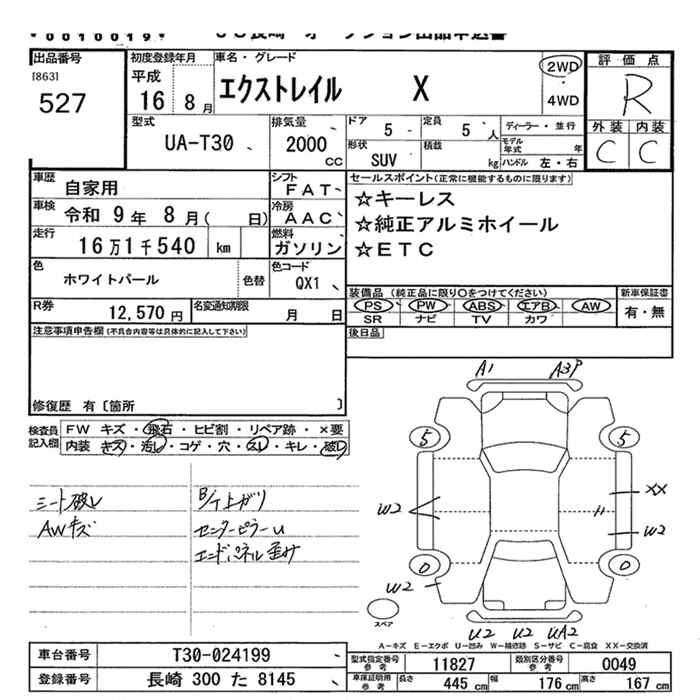 *0010019*
出品番号
[863]
527
初度登録年月
平成
16年 8月
車名・グレード
エクストレイル X
2WD
4WD
評価点
R
外装 内装
C C
型式
UA-T30
排気量
2000
CC
ドア
5
定員
5 人
ディーラー・並行
形状
SUV
積載
kg
モデル年式
年
ハンドル 左・右
車歴
自家用
シフト
FAT
車検
令和 9年 8月( 日)
冷房
AAC
走行
16万1千540 km
燃料
ガソリン
色
ホワイトパール
色替
色コード
QX1
R券
12,570 円
名変通知期限
月 日
セールスポイント(正常に機能するものに限ります)
☆キーレス
☆純正アルミホイール
☆ETC
装備品(純正品に限り○をつけてください)
PS PW ABS エアB AW
SR ナビ TV カワ
新車保証書
有・無
注意事項申告欄(不具合内容等は具体的に記入して下さい)
後日品
修復歴 有〔箇所 〕
検査員記入欄
FW キズ・飛石・ヒビ割・リペア跡・×要
内装 キズ・汚レ・コゲ・穴・スレ・キレ・破レ
シート破レ
AWキズ
B/T上がり
センターピラーU
エンドパネル歪み
A1 A3P
5 5
W2
XX
W2
0 0
W2
スペア
U2 U2 UA2
A-キズ E-エクボ U-凹み W-補修跡 S-サビ C-腐食 XX-交換済
車台番号
T30-024199
登録番号
長崎 300 た 8145
型式指定番号
参考
11827
類別区分番号
参考
0049
車庫証明用
参考
長さ 445 cm
幅 176 cm
高さ 167 cm